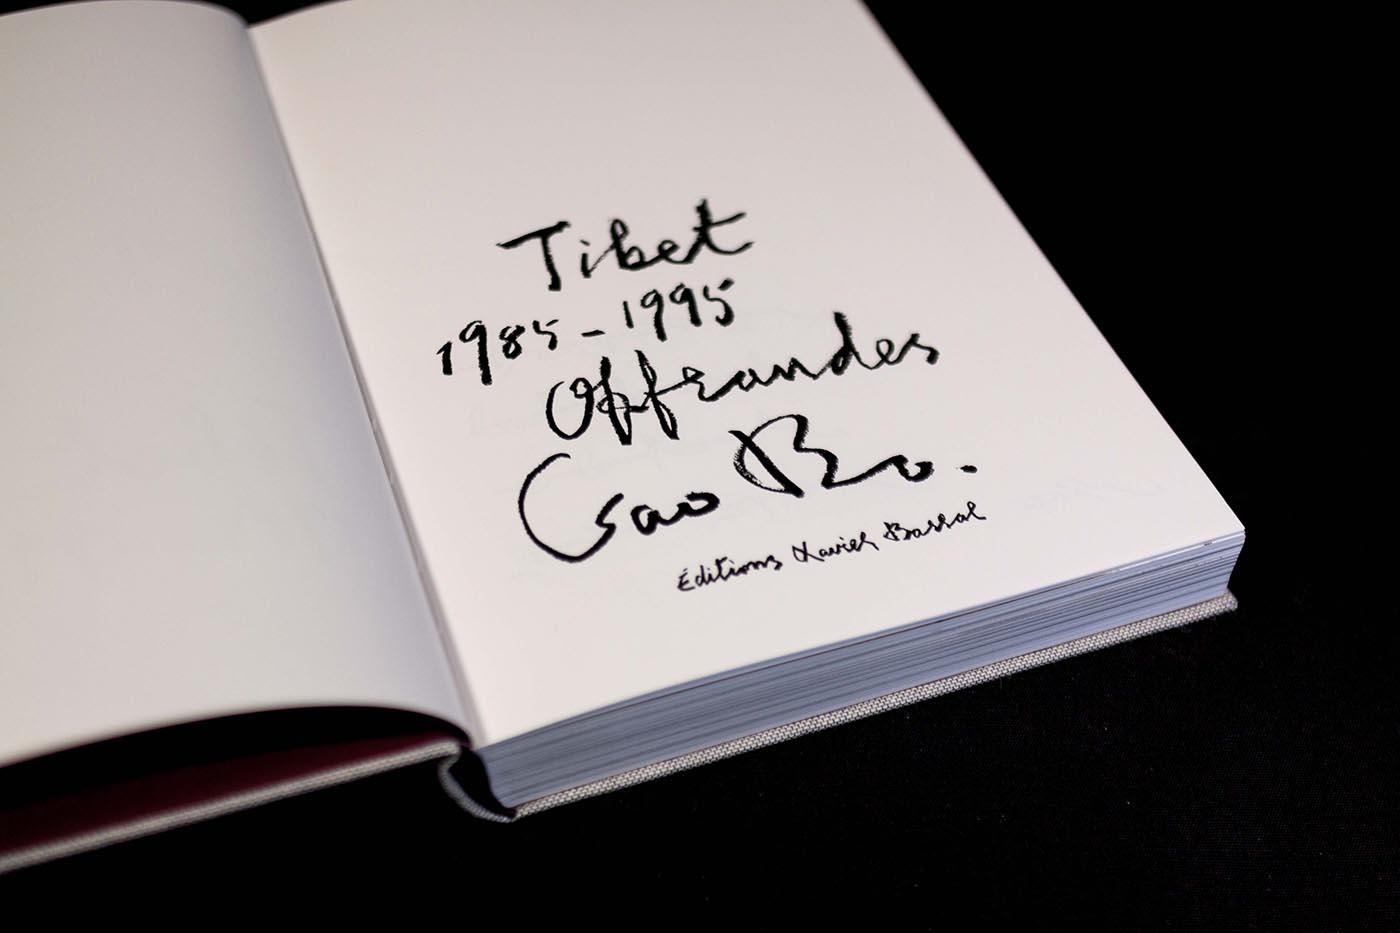 Tibet
1985-1995
Offrandes
Gao Bo.
Éditions Xavier Barral